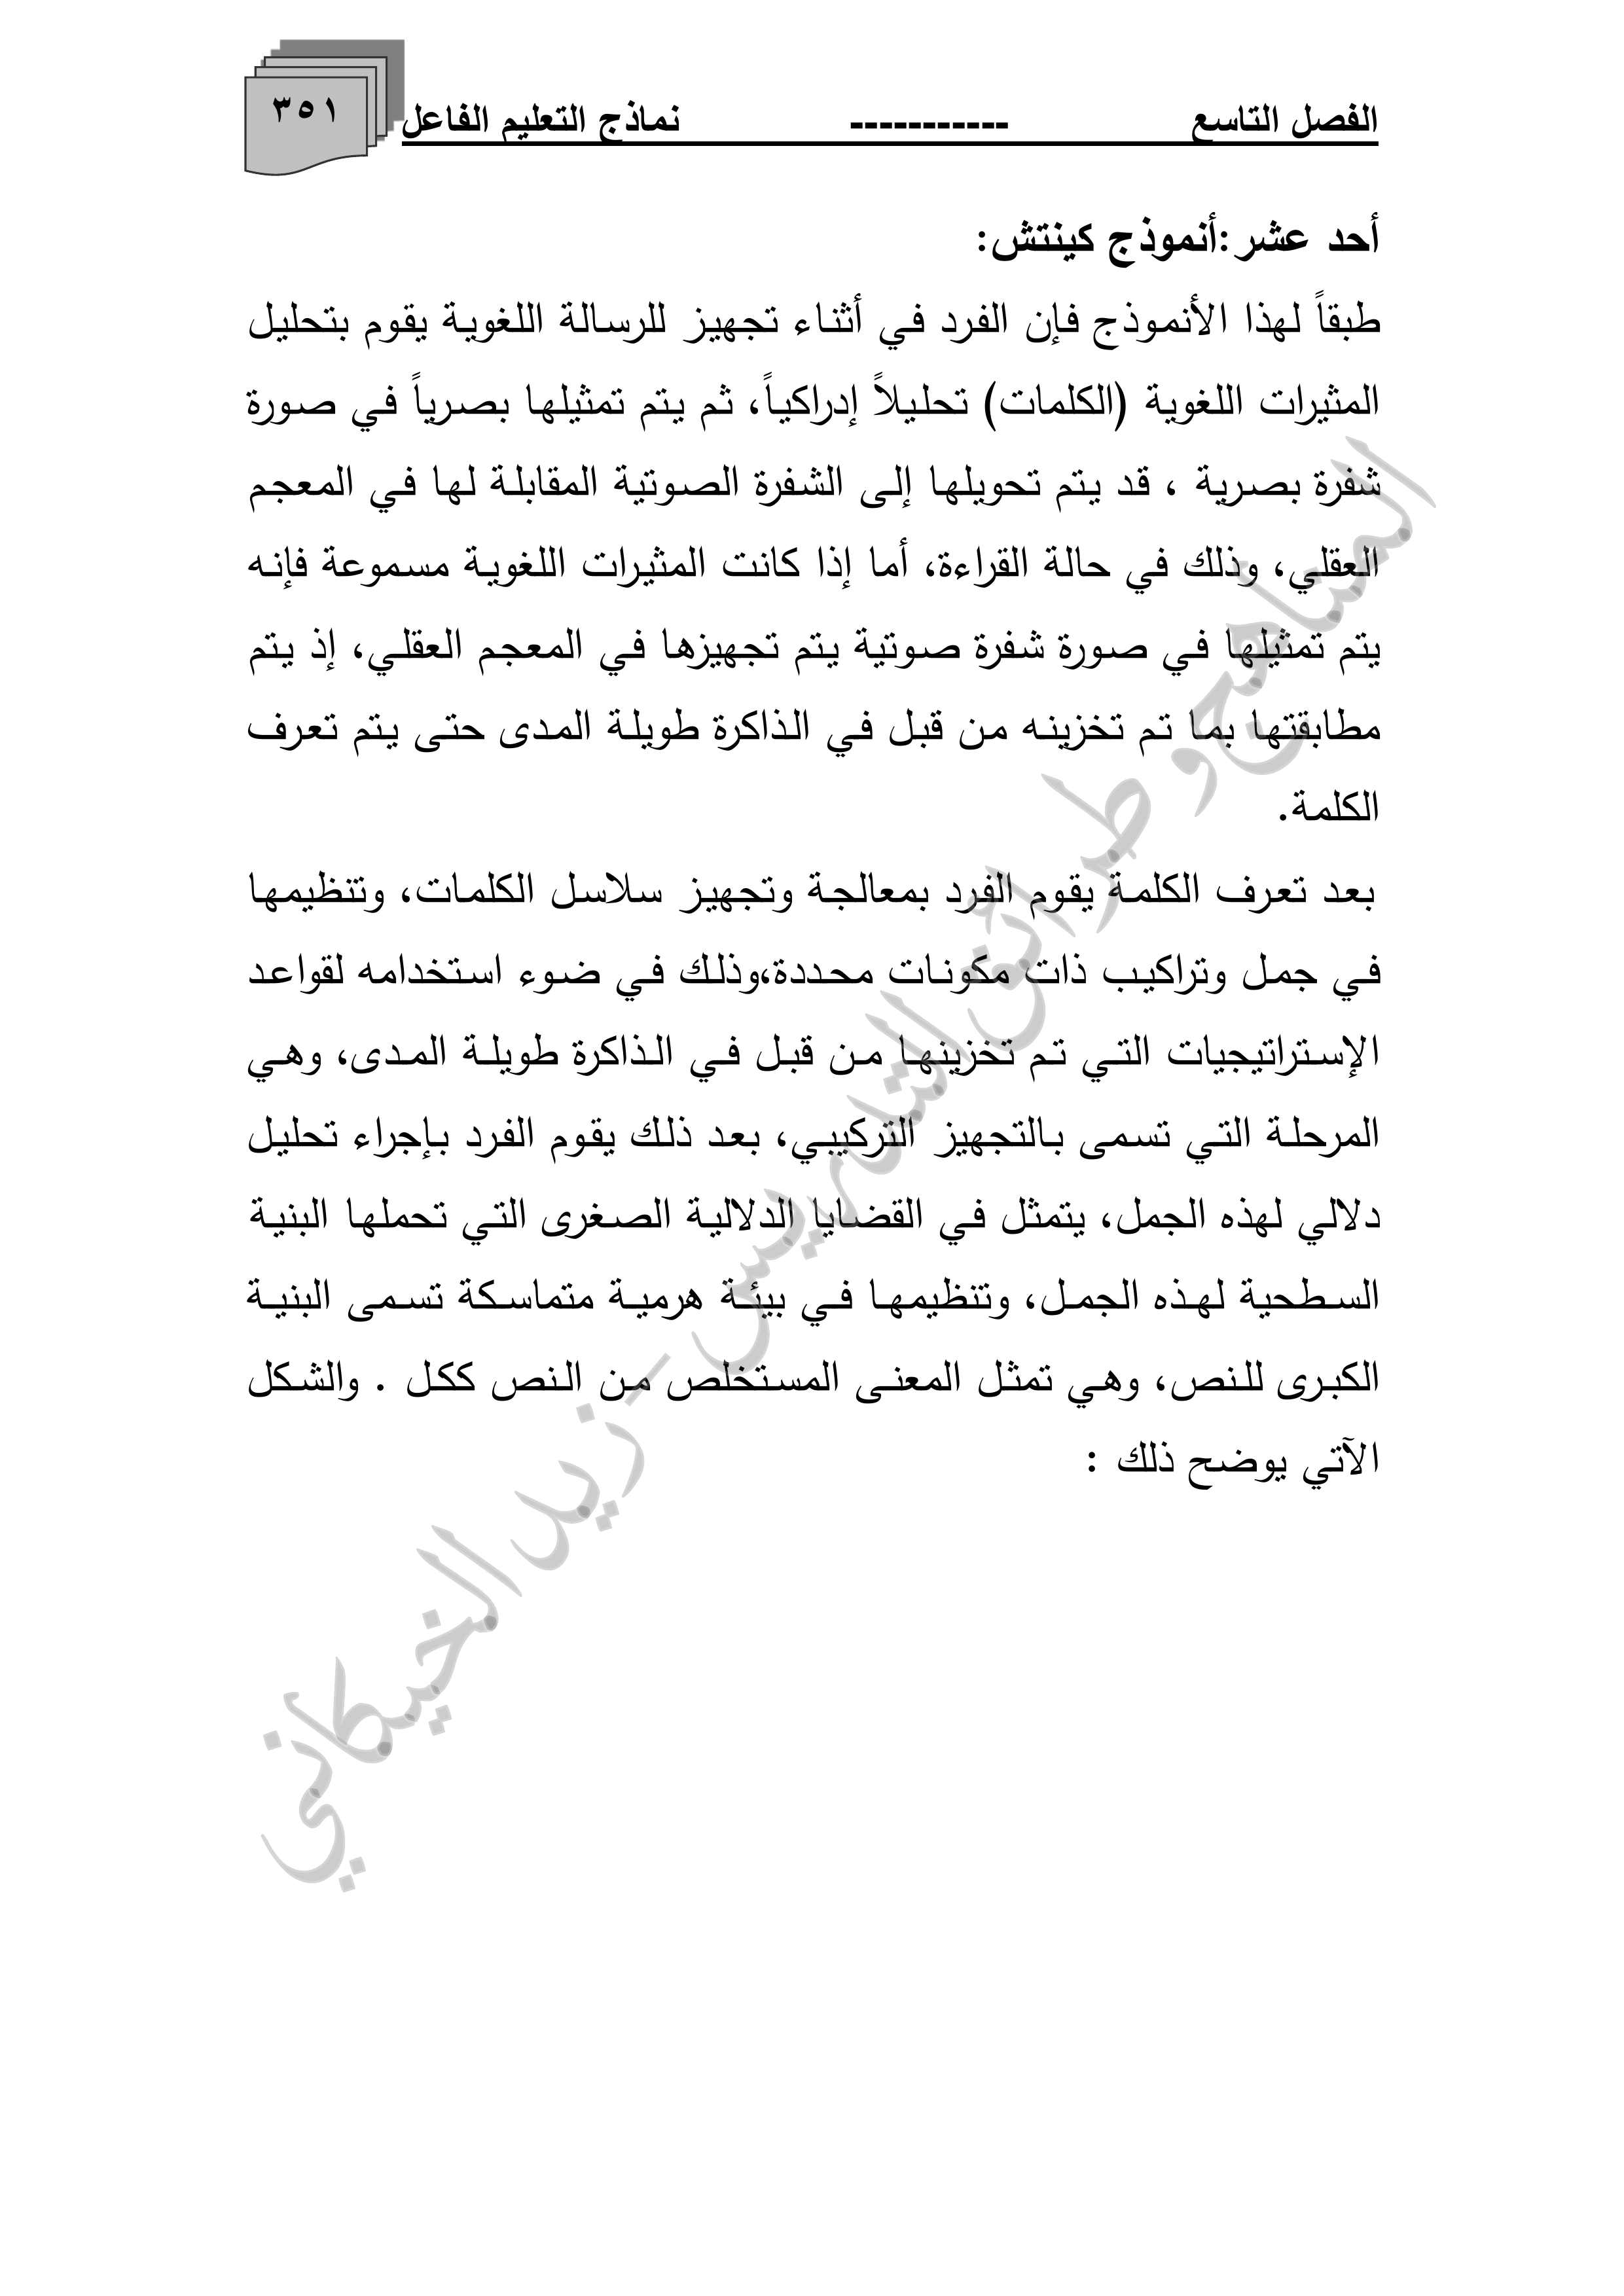 الفصل التاسع ----------- نماذج التعليم الفاعل ٣٥١
أحد عشر:أنموذج كينتش:
طبقاً لهذا الأنموذج فإن الفرد في أثناء تجهيز للرسالة اللغوية يقوم بتحليل
المثيرات اللغوية (الكلمات) تحليلاً إدراكياً، ثم يتم تمثيلها بصرياً في صورة
شفرة بصرية ، قد يتم تحويلها إلى الشفرة الصوتية المقابلة لها في المعجم
العقلي، وذلك في حالة القراءة، أما إذا كانت المثيرات اللغوية مسموعة فإنه
يتم تمثيلها في صورة شفرة صوتية يتم تجهيزها في المعجم العقلي، إذ يتم
مطابقتها بما تم تخزينه من قبل في الذاكرة طويلة المدى حتى يتم تعرف
الكلمة.
بعد تعرف الكلمة يقوم الفرد بمعالجة وتجهيز سلاسل الكلمات، وتنظيمها
في جمل وتراكيب ذات مكونات محددة،وذلك في ضوء استخدامه لقواعد
الإستراتيجيات التي تم تخزينها من قبل في الذاكرة طويلة المدى، وهي
المرحلة التي تسمى بالتجهيز التركيبي، بعد ذلك يقوم الفرد بإجراء تحليل
دلالي لهذه الجمل، يتمثل في القضايا الدلالية الصغرى التي تحملها البنية
السطحية لهذه الجمل، وتنظيمها في بيئة هرمية متماسكة تسمى البنية
الكبرى للنص، وهي تمثل المعنى المستخلص من النص ككل . والشكل
الآتي يوضح ذلك :
المناهج وطرائق التدريس - زيد الخيكاني